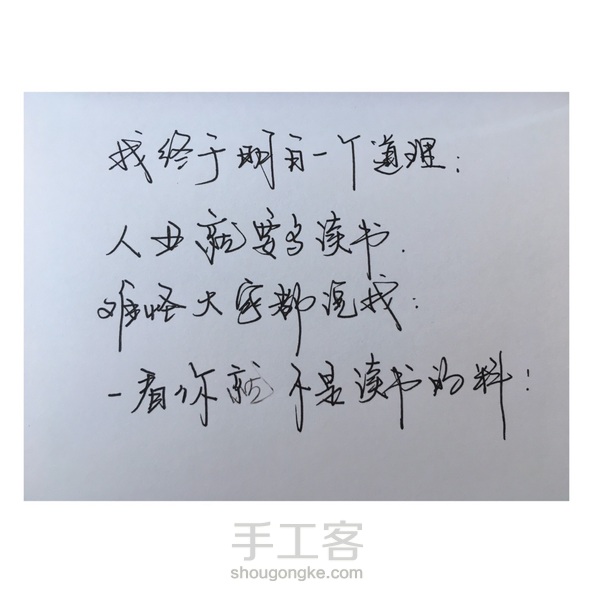 我终于明白一个道理：
人丑就要多读书.
难怪大家都说我：
一看你就不是读书的料！
手工客
shougongke.com